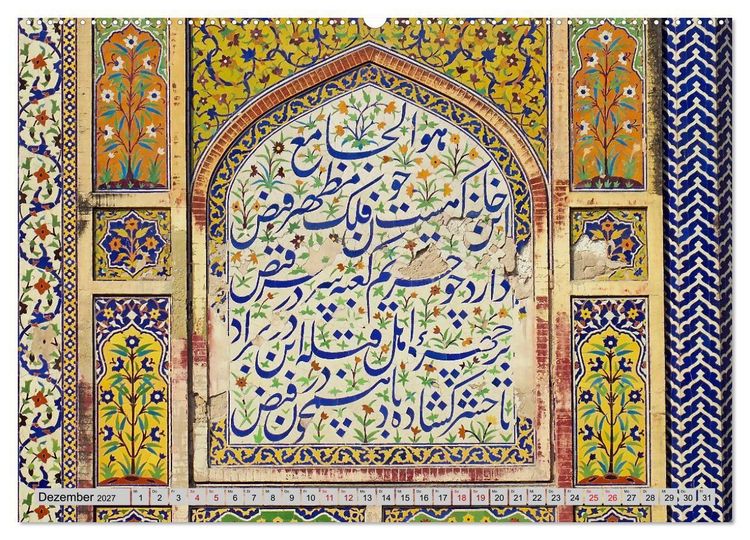 هو الجامع
این خانه که هست چون فلک مظهر فیض
دارد چو حریم کعبه در سر فیض
بر چهره اهل قبله این در
تا حشر گشاده باد همچون در فیض
Dezember 2027 1 2 3 4 5 6 7 8 9 10 11 12 13 14 15 16 17 18 19 20 21 22 23 24 25 26 27 28 29 30 31